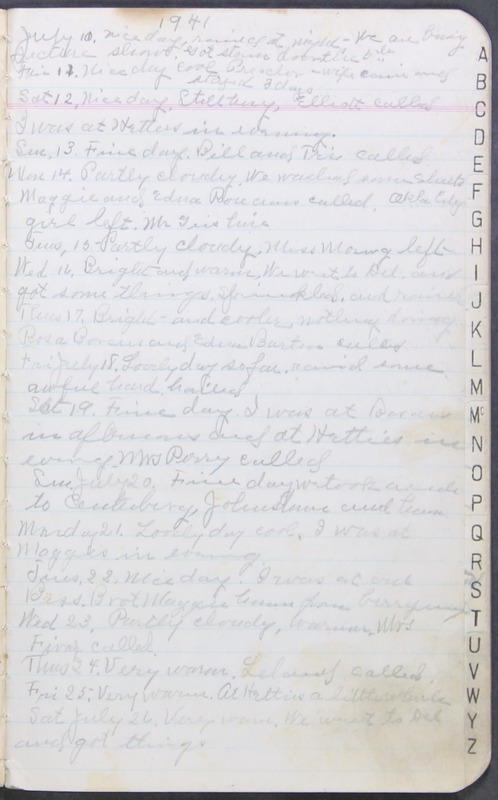 1941
July 10, nice day, rained at night - We are busy
picture show. Got storm down the
Fri 11. Nice day cool Preacher - wife came and
stayed 3 days
Sat 12, Nice day, Still busy, Elliott called
I was at Hetties in evening.
Sun, 13. Fine day. Bill and Tris called
Mon 14. Partly cloudy. We washed some sheets
Maggie and Edna called.
girl left. Mr here
Tues, 15 Partly cloudy. Miss left
Wed 16, Bright and warm, We went to Del. and
got some things, sprinkled, and rained
Thurs 17, Bright - and cooler, nothing doing
Rosa and Edna Burton called
Fri July 18. Lovely day so far, rained some
awful hard, hailed
Sat 19. Fine day. I was at
in afternoon and at Hetties in
evening, Mrs Perry called
Sun, July 20. Fine day we took a ride
to Centerberg, Johnstown and home
Monday 21. Lovely day cool. I was at
Maggies in evening.
Tues, 22. Nice day. I was at
Brot Maggie home from
Wed 23, Partly cloudy, warmer, Mrs
called.
Thurs 24. Very warm. called.
Fri 25. Very warm. At Hetties a little while
Sat July 26. Very warm. We went to Del
and got things
A
B
C
D
E
F
G
H
I
J
K
L
M
Mc
N
O
P
Q
R
S
T
U
V
W
Y
Z